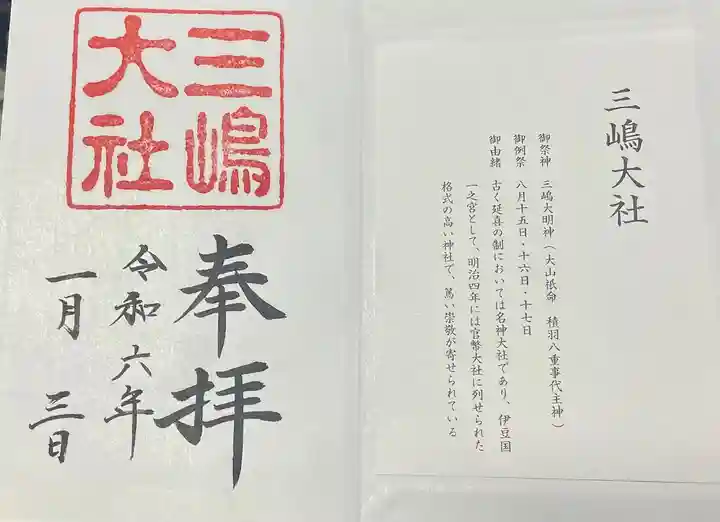 三嶋
大社
奉拝
令和六年
一月三日
三嶋大社
御祭神 三嶋大明神(大山祇命 積羽八重事代主神)
御例祭 八月十五日・十六日・十七日
御由緒 古く延喜の制においては名神大社であり、伊豆国
一之宮として、明治四年には官幣大社に列せられた
格式の高い神社で、篤い崇敬が寄せられている